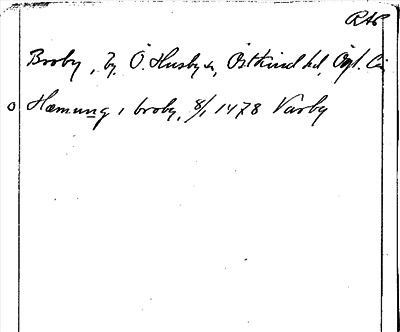 RAP
Broby, by, Ö. Husby sn, Östkind hd, Ögl. län
Hæmung i broby, 8/1 1478 Vårby